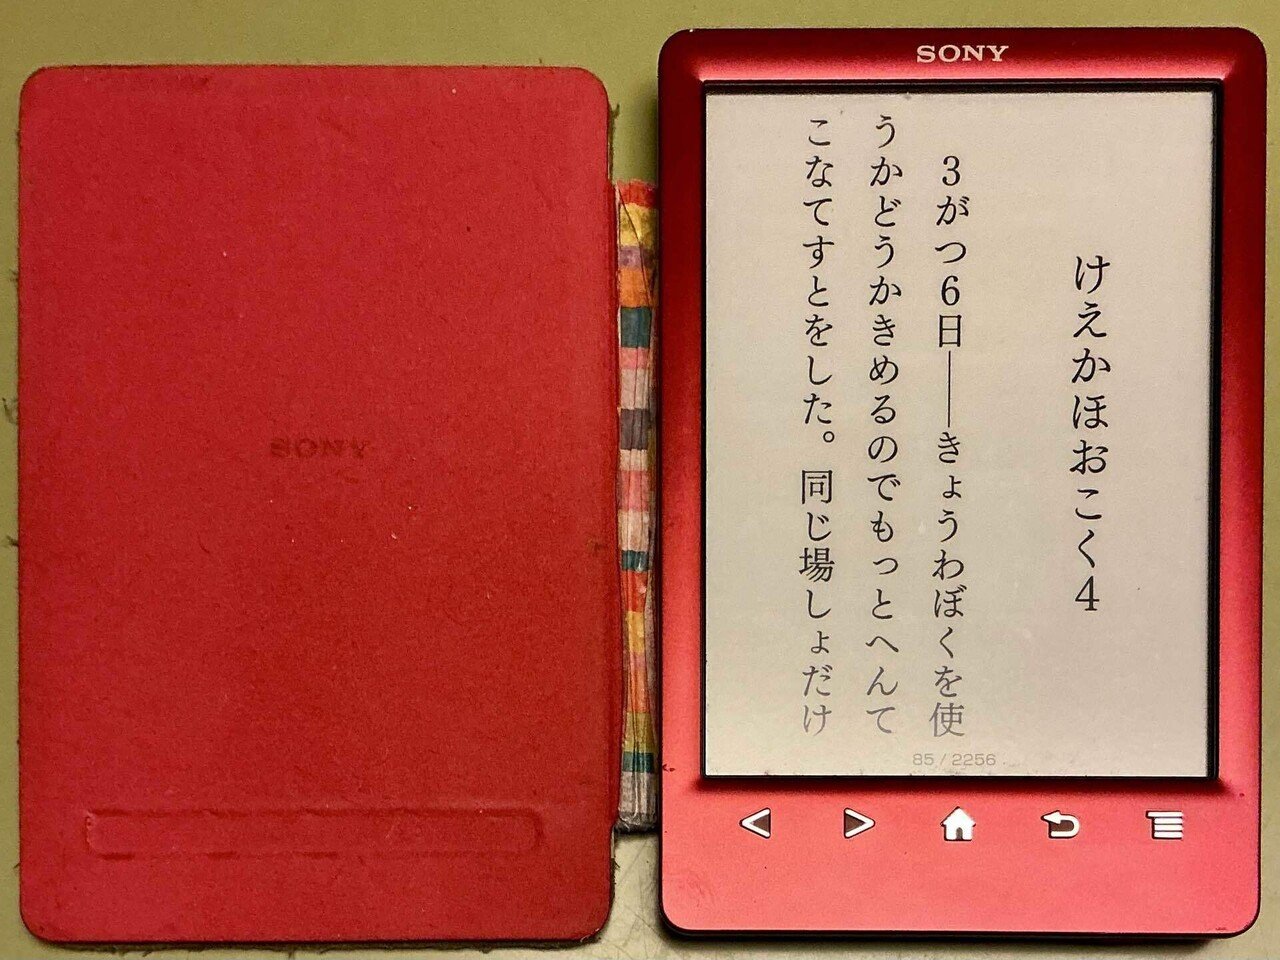 SONY
SONY
けえかほおこく4
3がつ6日――きょうわぼくを使
うかどうかきめるのでもっとへんて
こなてすとをした。同じ場しょだけ
85 / 2256